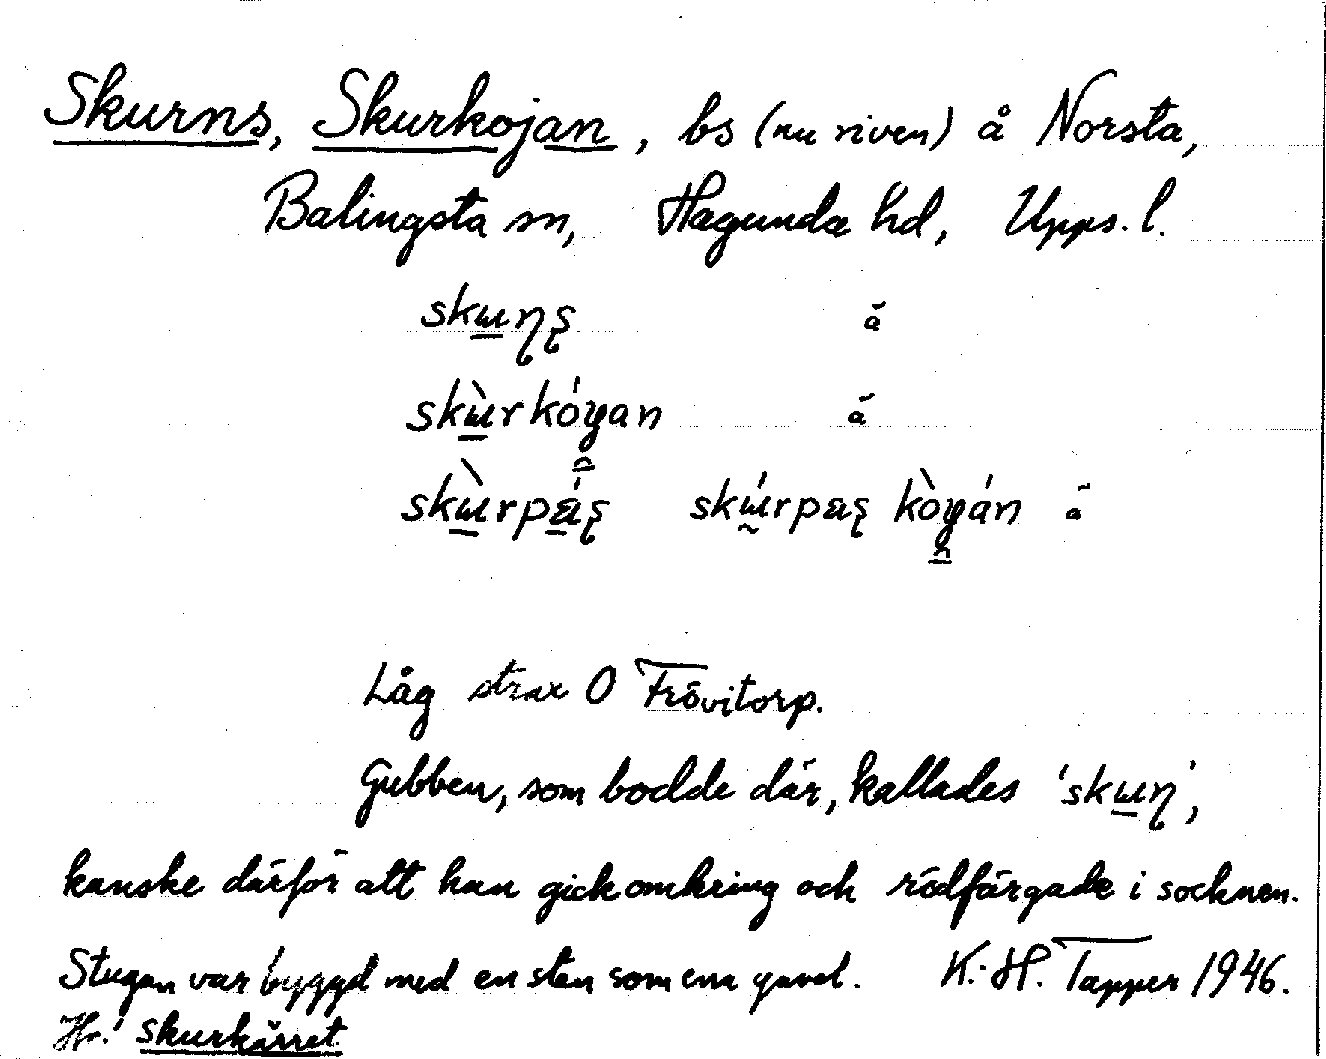 Skurns, Skurkojan, bs (nu riven) å Norsta,
Balingsta sn, Hagunda hd, Upps. l.
å
å
å
Låg strax O Frövitorp.
Gubben, som bodde där, kallades
kanske därför att han gick omkring och rödfärgade i socknen.
Stugan var byggd med en sten som ena gavel. K.-H. Tapper 1946.
Hr! skurkärret